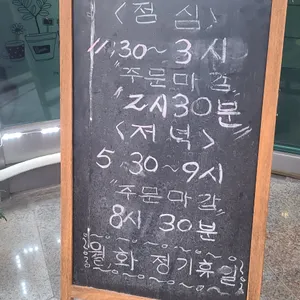 <점심>
11:30~3시
"주문마감
2시30분"
<저녁>
5:30~9시
"주문마감
8시 30분"
월,화 정기휴일